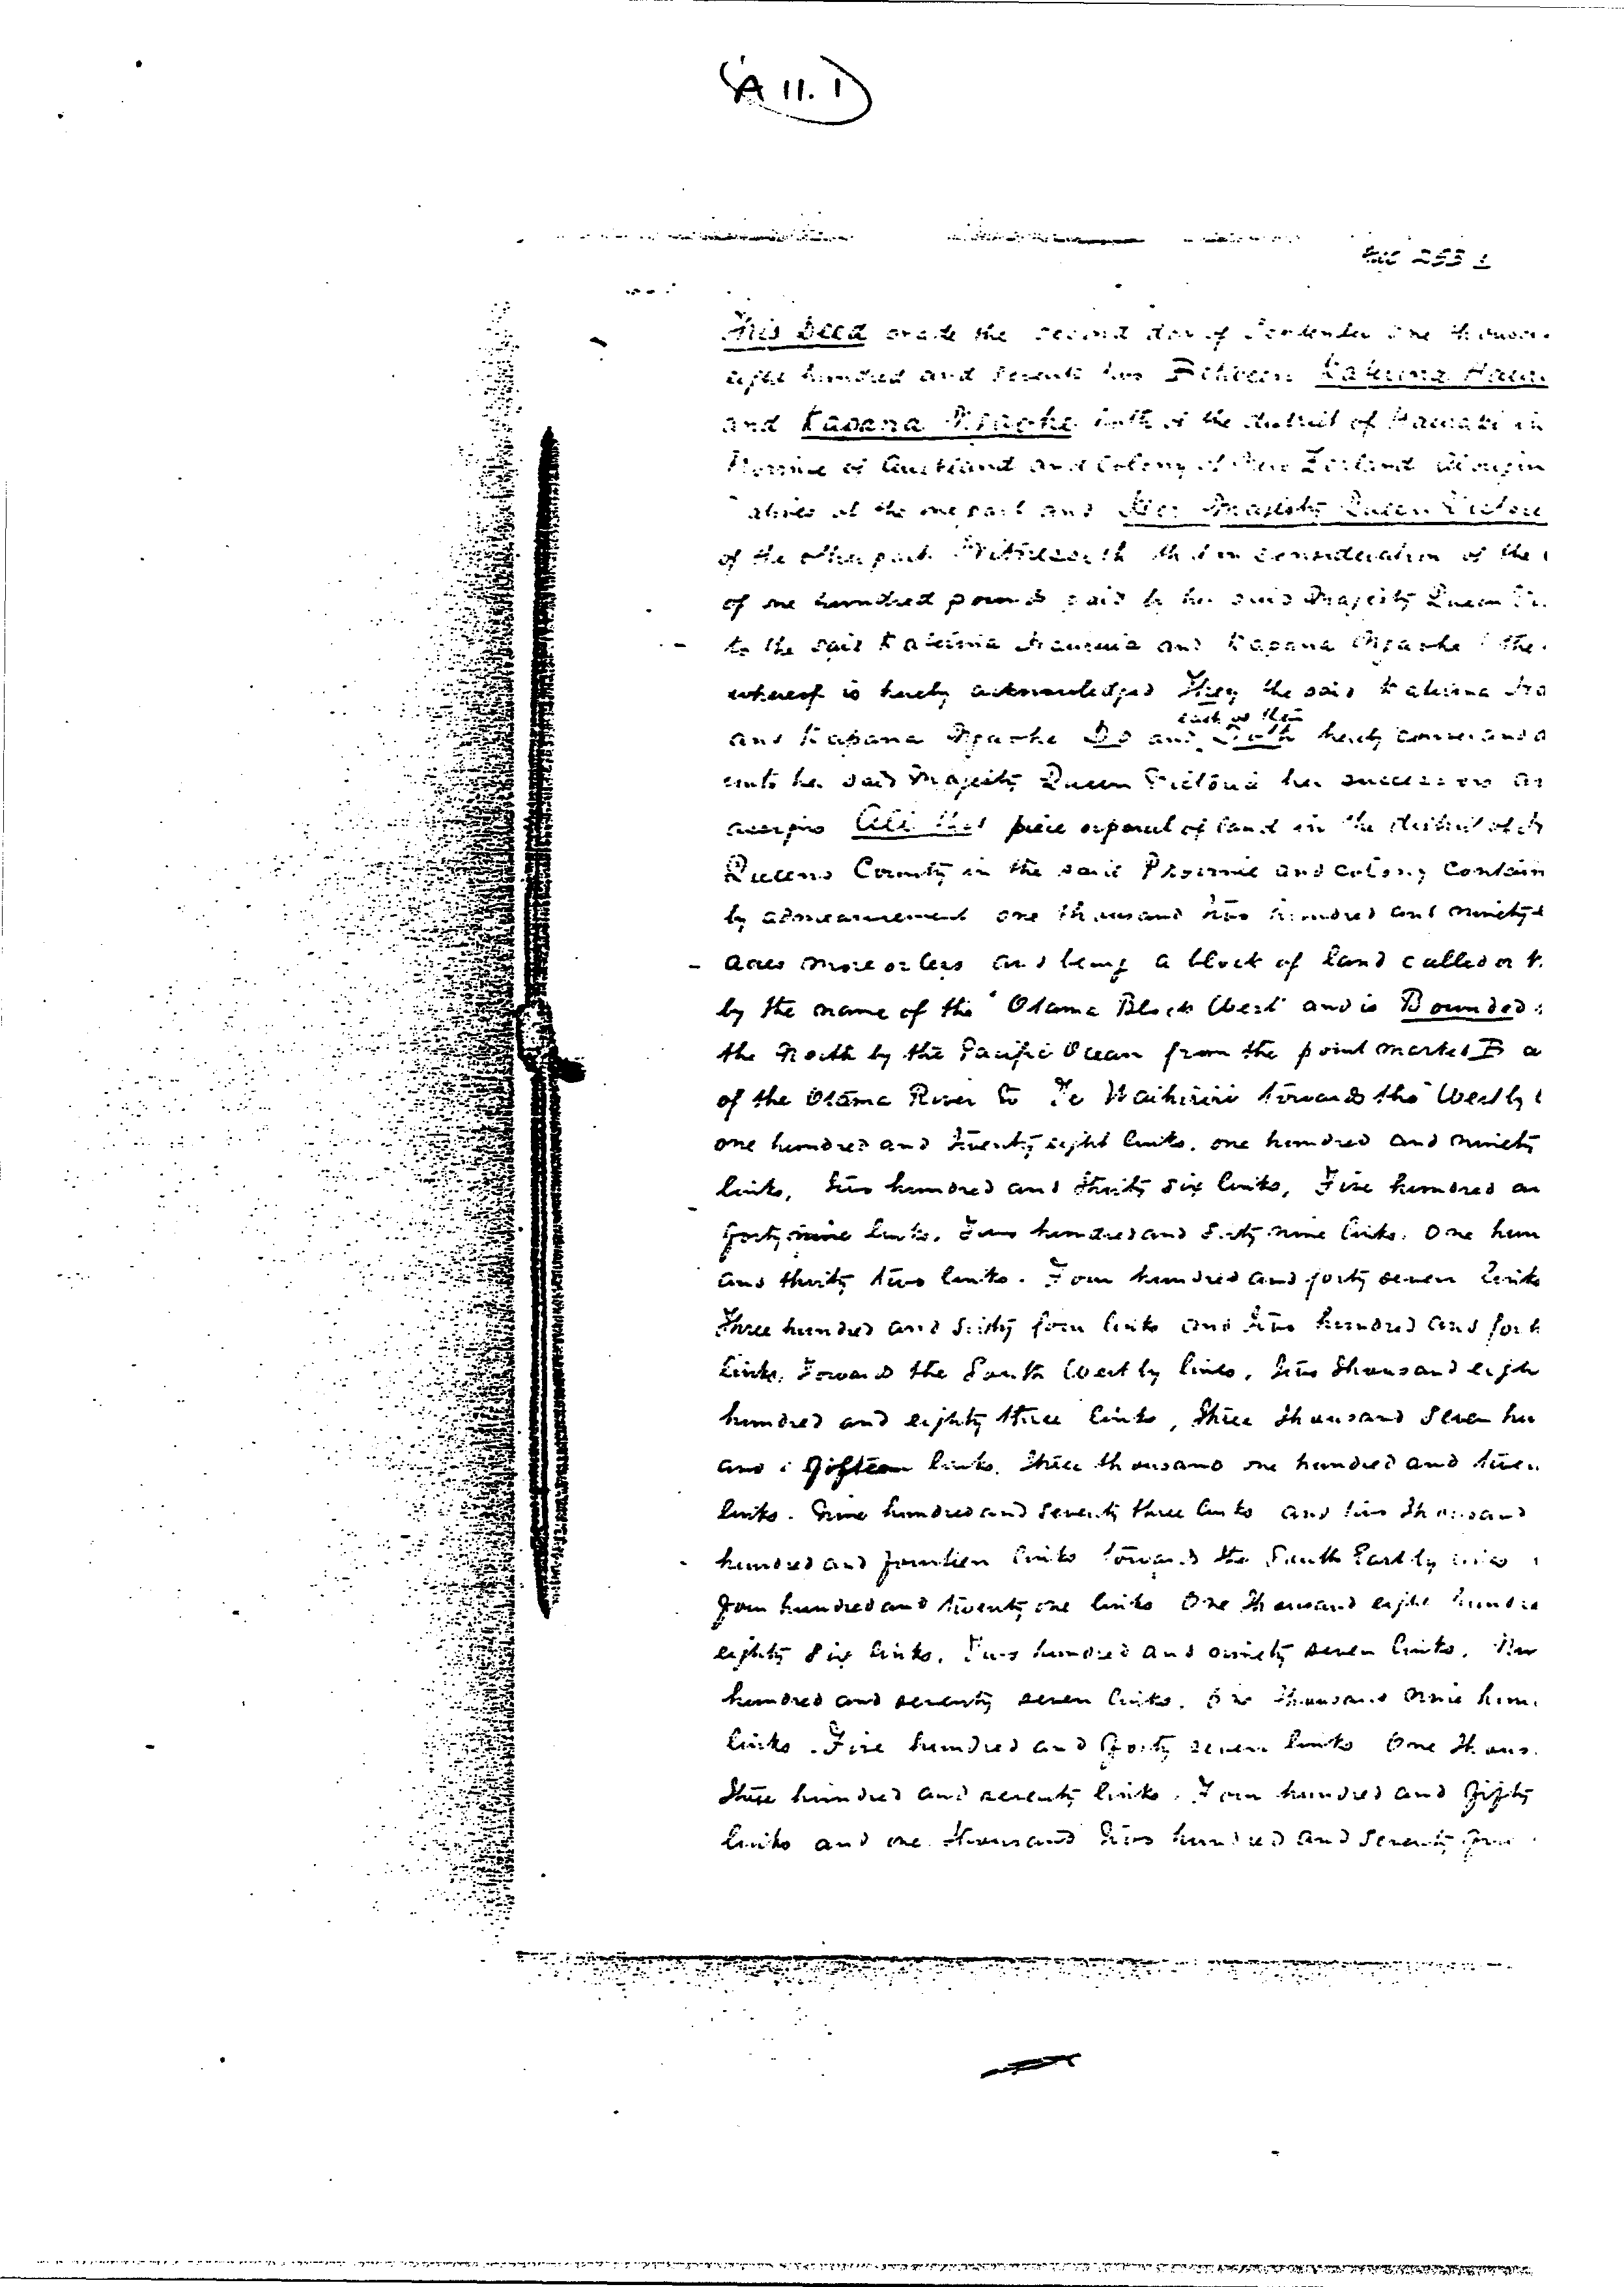 A 11. 1
This Deed made the second day of September One thousan
eight hundred and seventy two Between Katerina Hau
and Rapana Ngaohe both of the district of Hauraki in
Province of Auckland and Colony of New Zealand
of the one part and Her Majesty Queen Victori
of the other part Witnesseth that in consideration of the
of one hundred pounds paid by her said Majesty Queen Vi
to the said Katerina Hauruia and Rapana Ngaohe the
whereof is hereby acknowledged They the said Katerina Ha
each of them
and Rapana Ngaohe Do and Doth hereby convey and a
unto her said Majesty Queen Victoria her successors an
assigns All that piece or parcel of land in the district of
Queens County in the said Province and Colony Contain
by admeasurement one thousand two hundred and ninety
acres more or less and being a block of land called or k
by the name of the "Otama Block West" and is Bounded
the North by the Pacific Ocean from the point marked B a
of the Otama River to Te Waikiriri towards the West by l
one hundred and twenty eight links. one hundred and ninety
links, two hundred and thirty six links, Five hundred an
forty nine links. Two hundred and sixty nine links. One hun
and thirty two links. Four hundred and forty seven links
Three hundred and sixty four links and two hundred and fort
links. Towards the South West by lines, two thousand eigh
hundred and eighty three links, three thousand seven hu
and fifteen links. three thousand one hundred and twen
links. Nine hundred and seventy three links and two thousand
hundred and fourteen links towards the South East by lines
four hundred and twenty one links One thousand eight hundre
eighty six links. Two hundred and ninety seven links.
hundred and seventy seven links. thousand nine hun
links. Five hundred and forty seven links One thous
three hundred and seventy links. Four hundred and fifty
links and one thousand two hundred and seventy